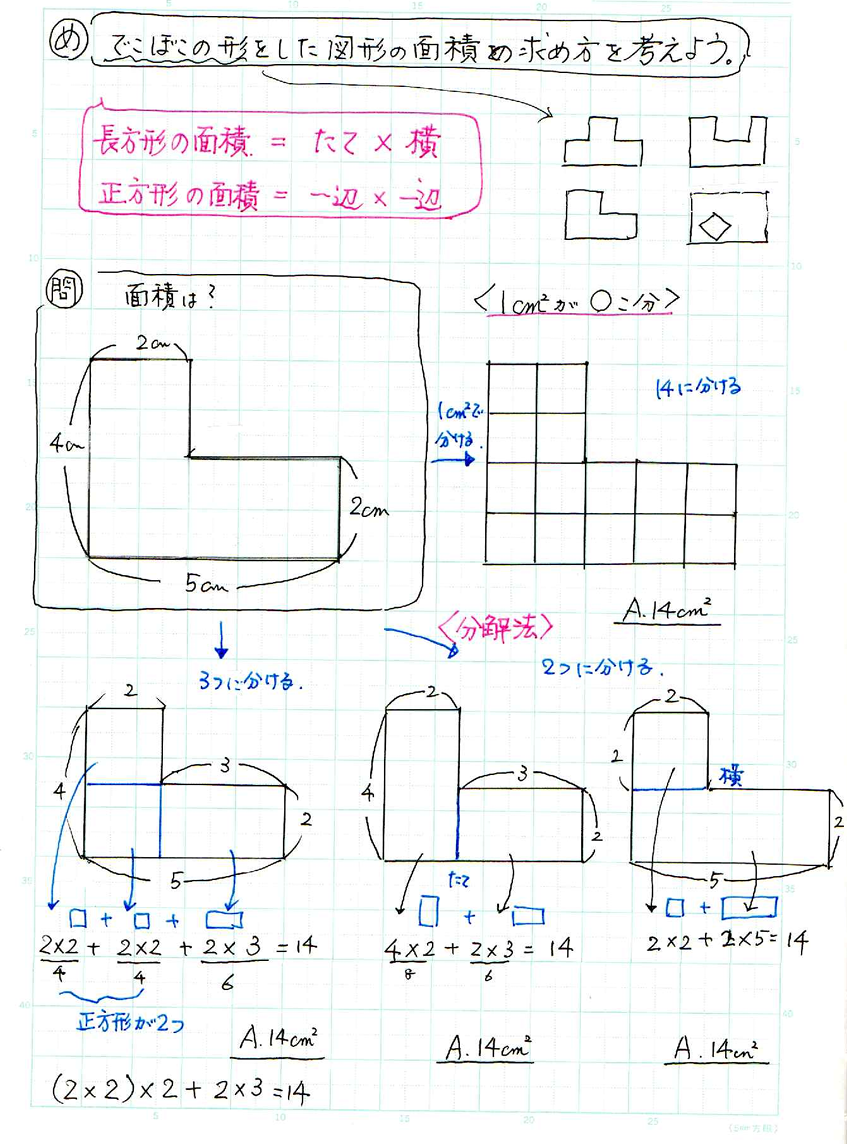 め でこぼこの形をした図形の面積の求め方を考えよう。
長方形の面積 = たて × 横
正方形の面積 = 一辺 × 一辺
問 面積は?
2cm
4cm
2cm
5cm
<1cm²が○こ分>
1cm²で
分ける.
14に分ける
A.14cm²
<分解法>
3つに分ける.
2つに分ける.
2
4
3
2
5
□ + □ + □
2×2 + 2×2 + 2×3 = 14
4 4 6
正方形が2つ
A.14cm²
(2×2)×2 + 2×3 = 14
2
4
3
2
たて
□ + □
4×2 + 2×3 = 14
8 6
A.14cm²
2
2
横
2
5
□ + □
2×2 + 2×5 = 14
A.14cm²
5
10
15
20
25
30
35
40
5
10
15
20
25
30
35
40
5
10
15
20
25